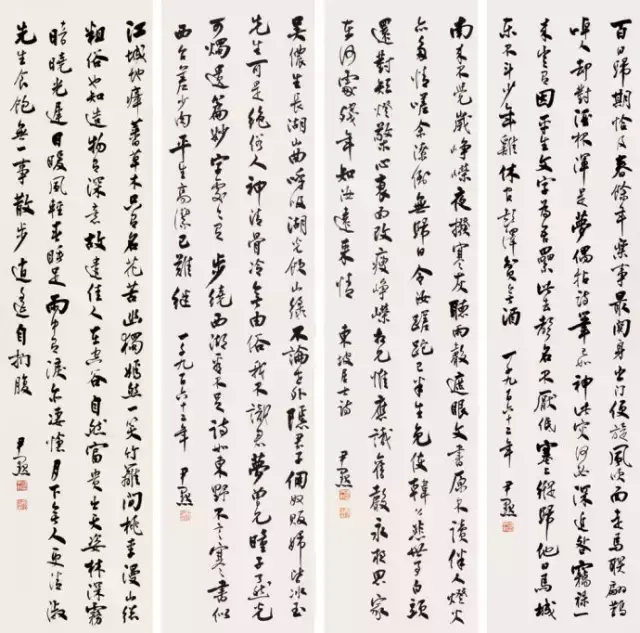 百日歸期恰及春餘年樂事最關身出門便旋風吹面走馬聯翩鵲
啅人却對酒杯渾是夢偶拈詩筆已如神此災何必深追咎竊祿從
來豈有因平生文字為吾累此去聲名不厭低塞上縱歸他日馬城
東不斗少年雞休官彭澤貧無酒 一千九百六十二年 尹默
南來不覺歲崢嶸夜撥寒灰聽雨聲遮眼文書原不讀伴人燈火
亦多情嗟余潦倒無歸日今汝蹉跎已半生免使韓公悲世事白頭
還對短燈檠心衰面改瘦崢嶸相見惟應識舊聲永夜思家
在何處殘年知汝遠來情 東坡居士詩 尹默
吳儂生長湖山曲呼吸湖光飲山綠不論世外隱君子傭奴販婦皆冰玉
先生可是絕倫人神清骨冷無由俗我不識君夢曾見瞳子了然光
可燭遺篇妙字處處有步繞西湖看不足詩如東野不言寒書似
西台差少肉平生高潔已難繼 一千九百六十二年 尹默
江城地瘴蕃草木只有名花苦幽獨嫣然一笑竹籬間桃李漫山總
粗俗也知造物有深意故遣佳人在空谷自然富貴出天姿林深霧
暗曉光遲日暖風輕春睡足雨中有淚亦淒愴月下無人更清淑
先生食飽無一事散步逍遙自捫腹 尹默